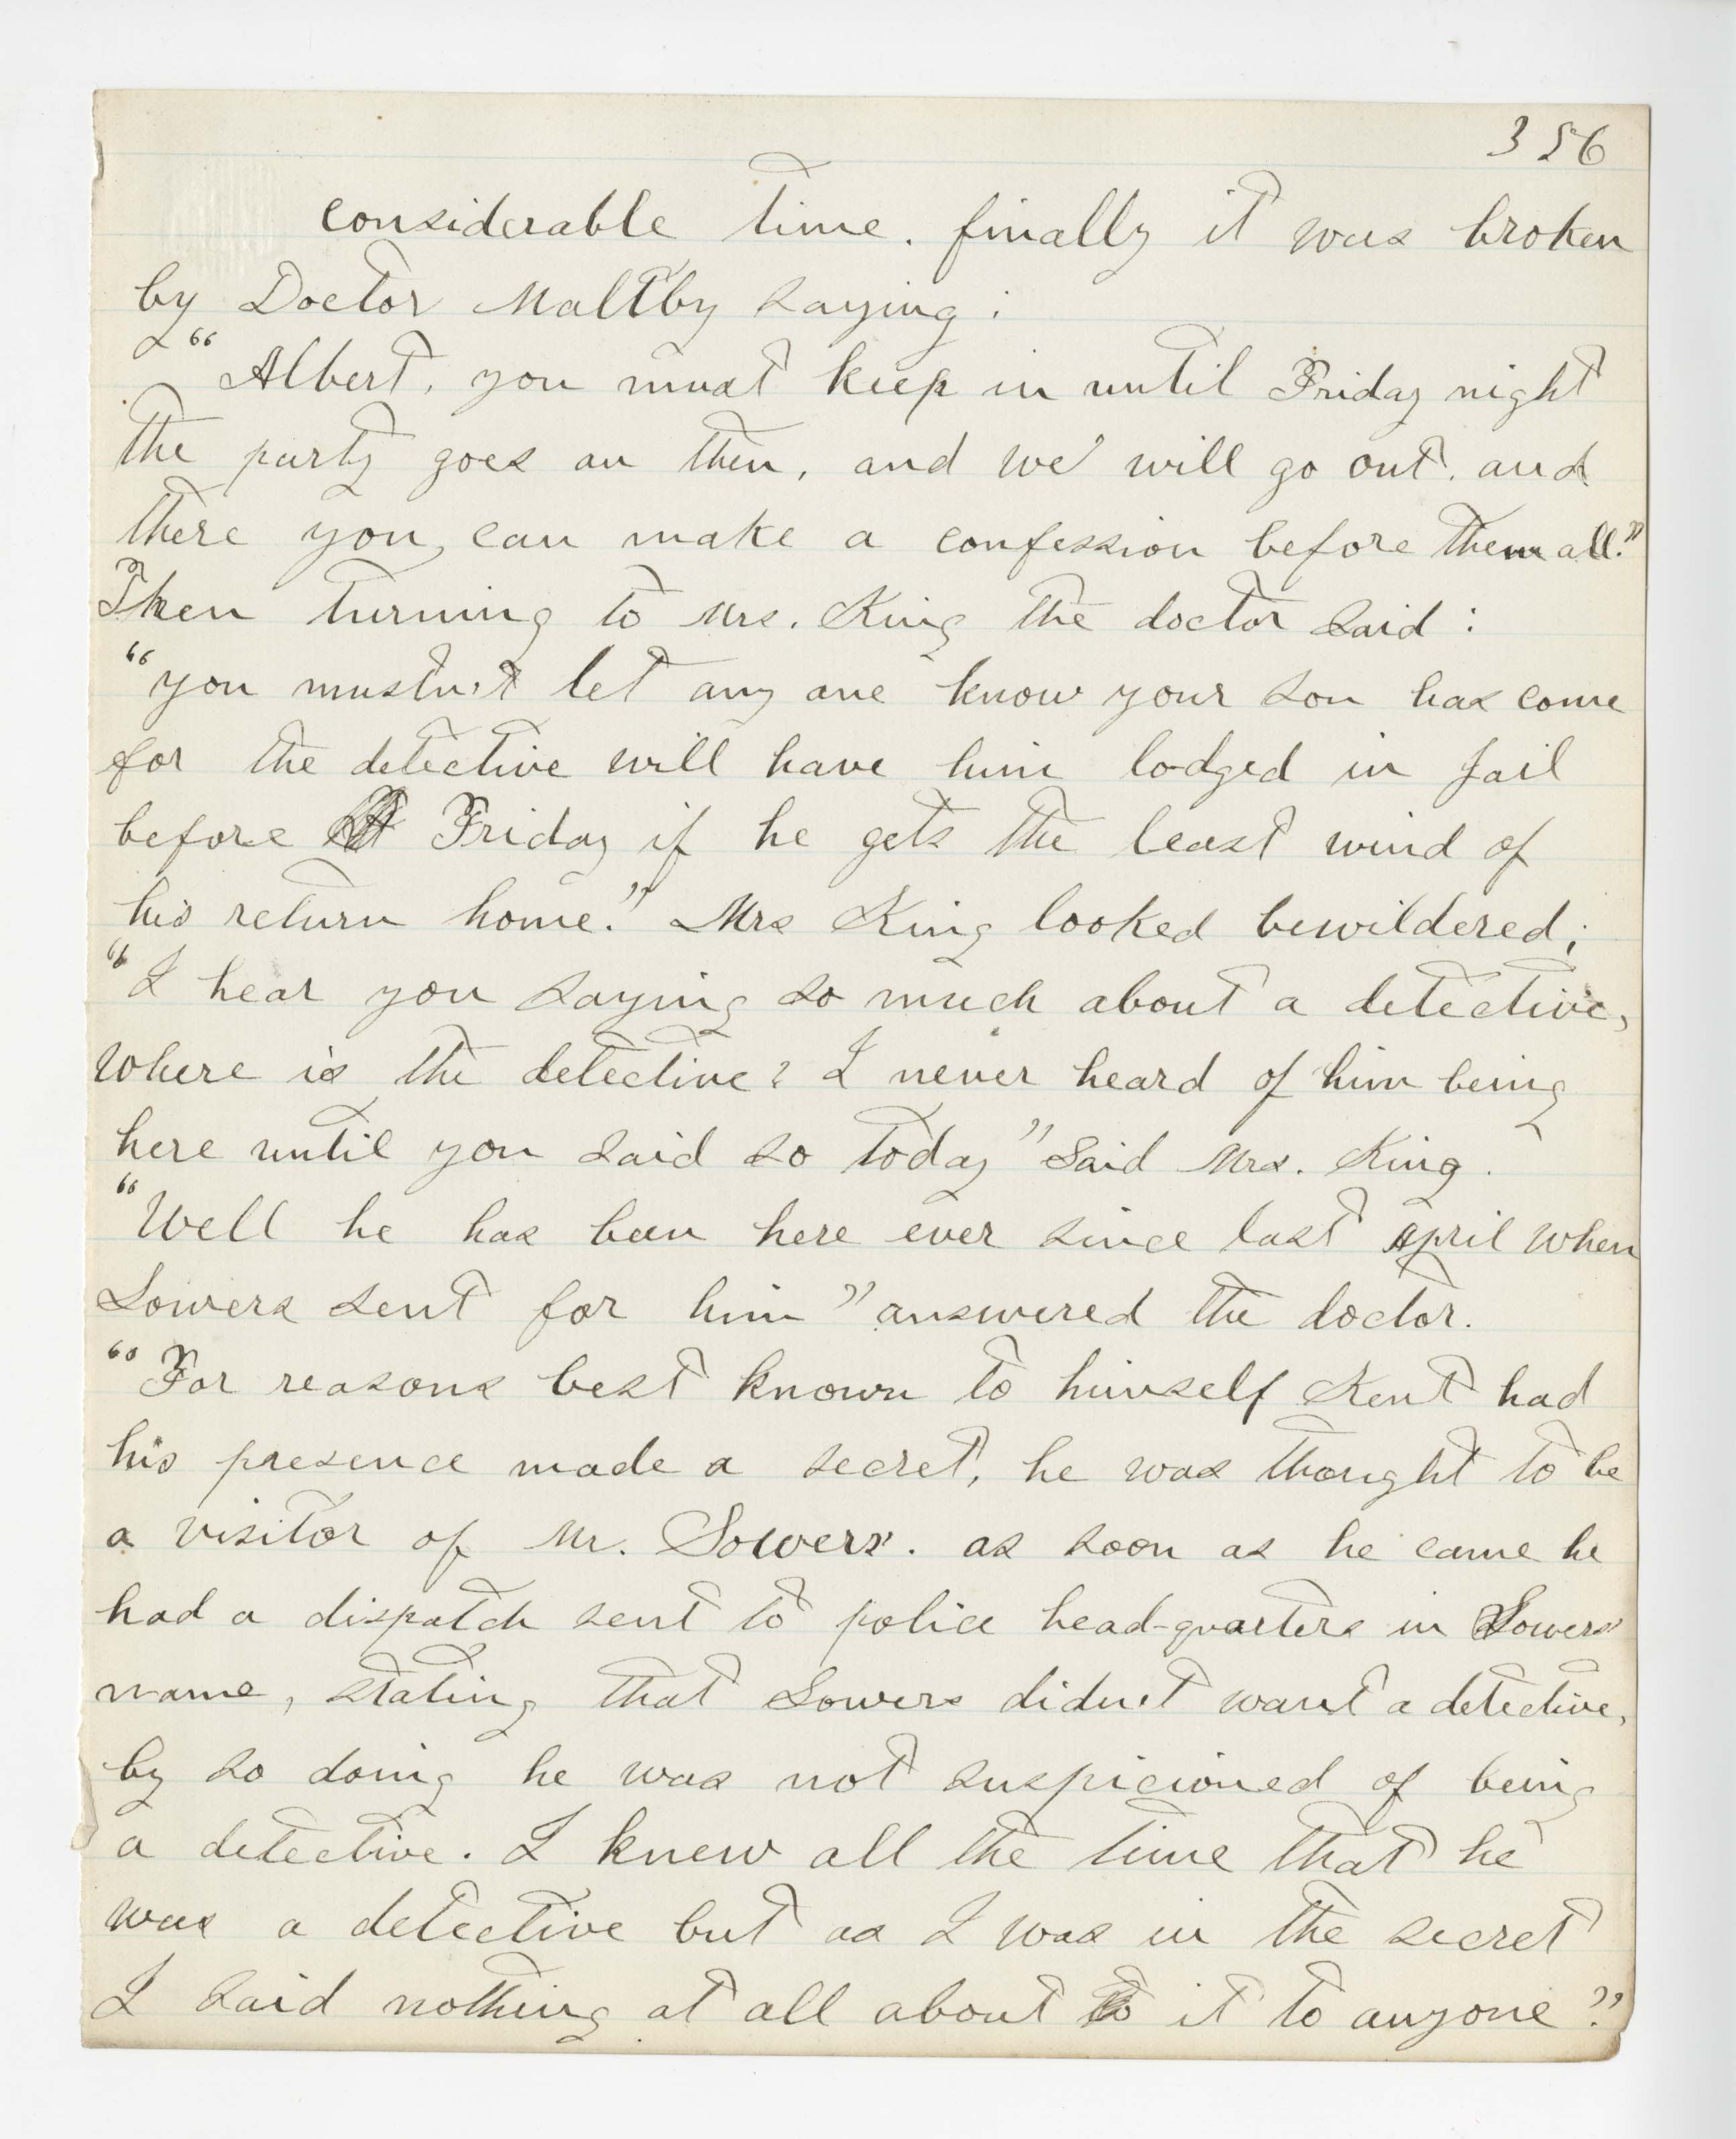 356
considerable time. finally it was broken
by Doctor Maltby saying:
"Albert, you must keep in until Friday night
the party goes on then, and we will go out, and
there you can make a confession before them all."
Then turning to Mrs. King the doctor said:
"you mustn't let any one know your son has come
for the detective will have him lodged in jail
before Friday if he gets the least wind of
his return home." Mrs King looked bewildered;
"I hear you saying so much about a detective,
where is the detective? I never heard of him being
here until you said so today" said Mrs. King.
"Well he has been here ever since last April when
Sowers sent for him" answered the doctor.
"For reasons best known to himself Kent had
his presence made a secret, he was thought to be
a visitor of Mr. Sowers. as soon as he came he
had a dispatch sent to police head-quarters in Sowers'
name, stating that Sowers didn't want a detective,
by so doing he was not suspicioned of being
a detective. I knew all the time that he
was a detective but as I was in the secret
I said nothing at all about it to anyone."